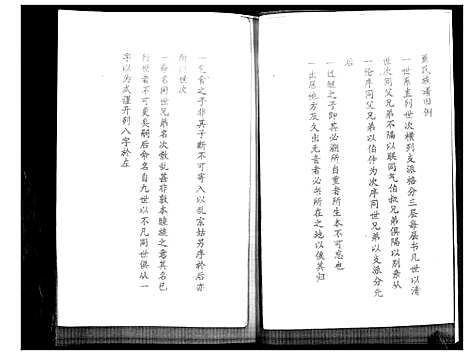 氏族譜凡例
一世系直列世次橫列支派格分三层每层书几世以清
世次同父兄弟不隔以联同气伯叔兄弟俱隔以别亲从
一伦序同父兄弟以伯仲为次序同世兄弟以支派分先
后
一过继之子即其必溯所自重者所生本不可忘也
一出居他方及久出无音者必书所在之地以俟其归
一之子非其子断不可寄入以乱宗姑另序於后亦
所世次
一命名同世兄弟名次散乱甚非敦本睦族之意其名已
行世者不可更矣嗣后命名自九世以不凡同世俱从一
字以为式谨开列八字於左